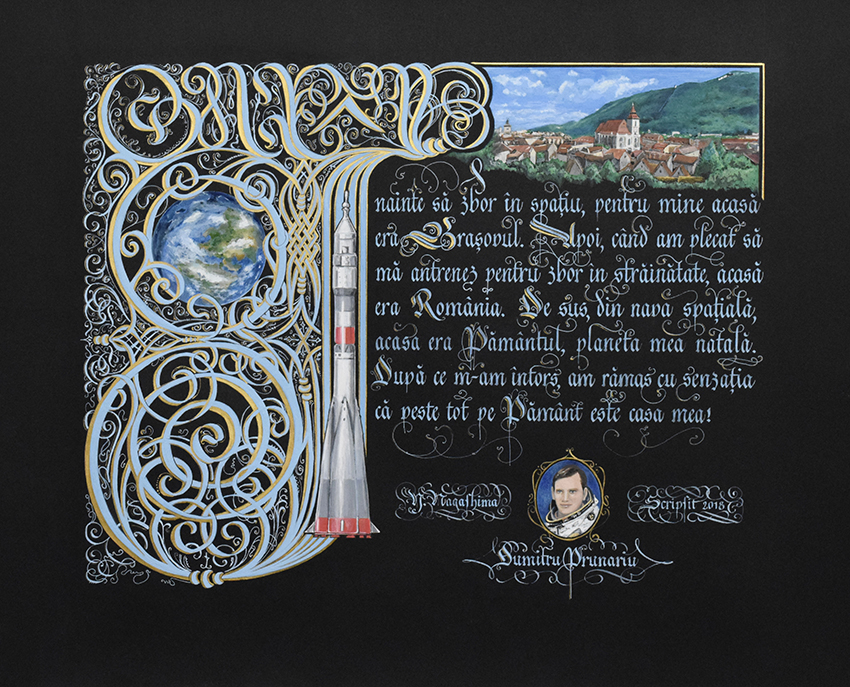 Înainte să zbor în spațiu, pentru mine acasă
era Brașovul. Apoi, când am plecat să
mă antrenez pentru zbor in străinătate, acasă
era România. De sus, din nava spațială,
acasă era Pământul, planeta mea natală.
După ce m-am întors, am rămas cu senzația
că peste tot pe Pământ este casa mea!
Y. Nagashima
Scripsit 2018
Dumitru Prunariu